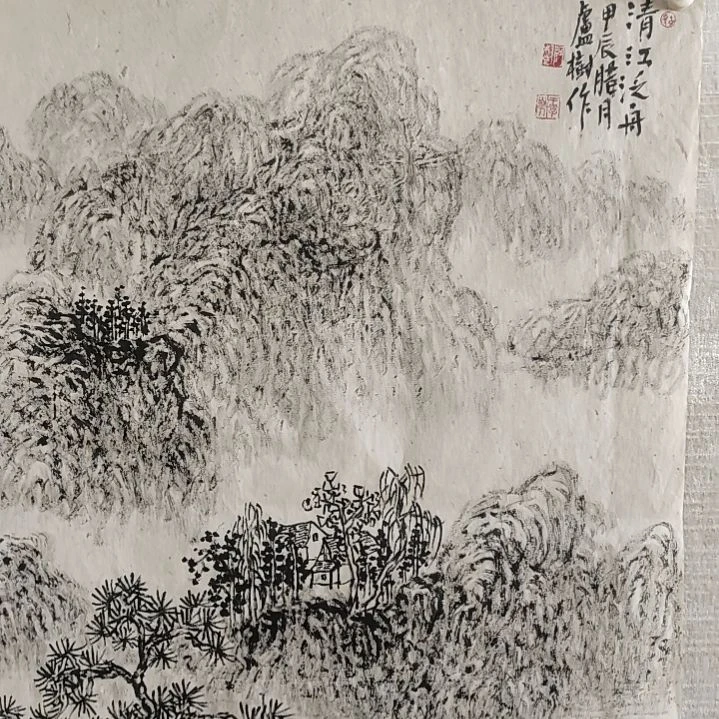 清江泛舟
甲辰腊月
盧樹作